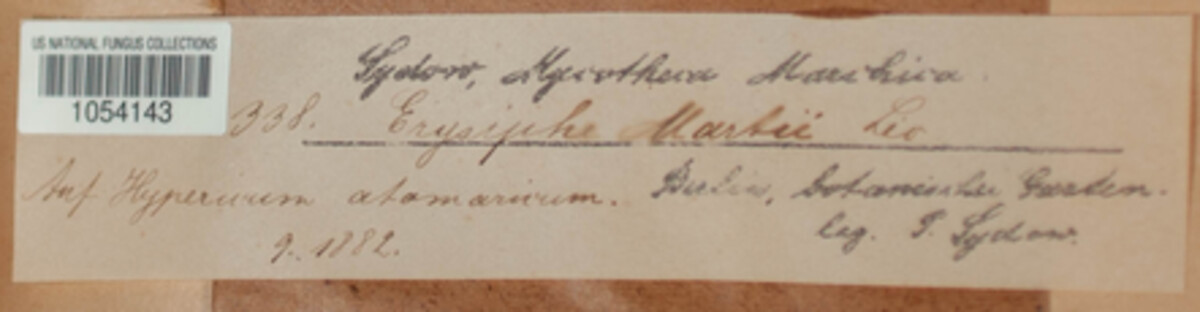 US NATIONAL FUNGUS COLLECTIONS
1054143
Sydow, Mycotheca Marchica.
338. Erysiphe Martii Lév
Auf Hypericum atomaricum. Berlin, botanischer Garten.
9. 1882. leg. P. Sydow.